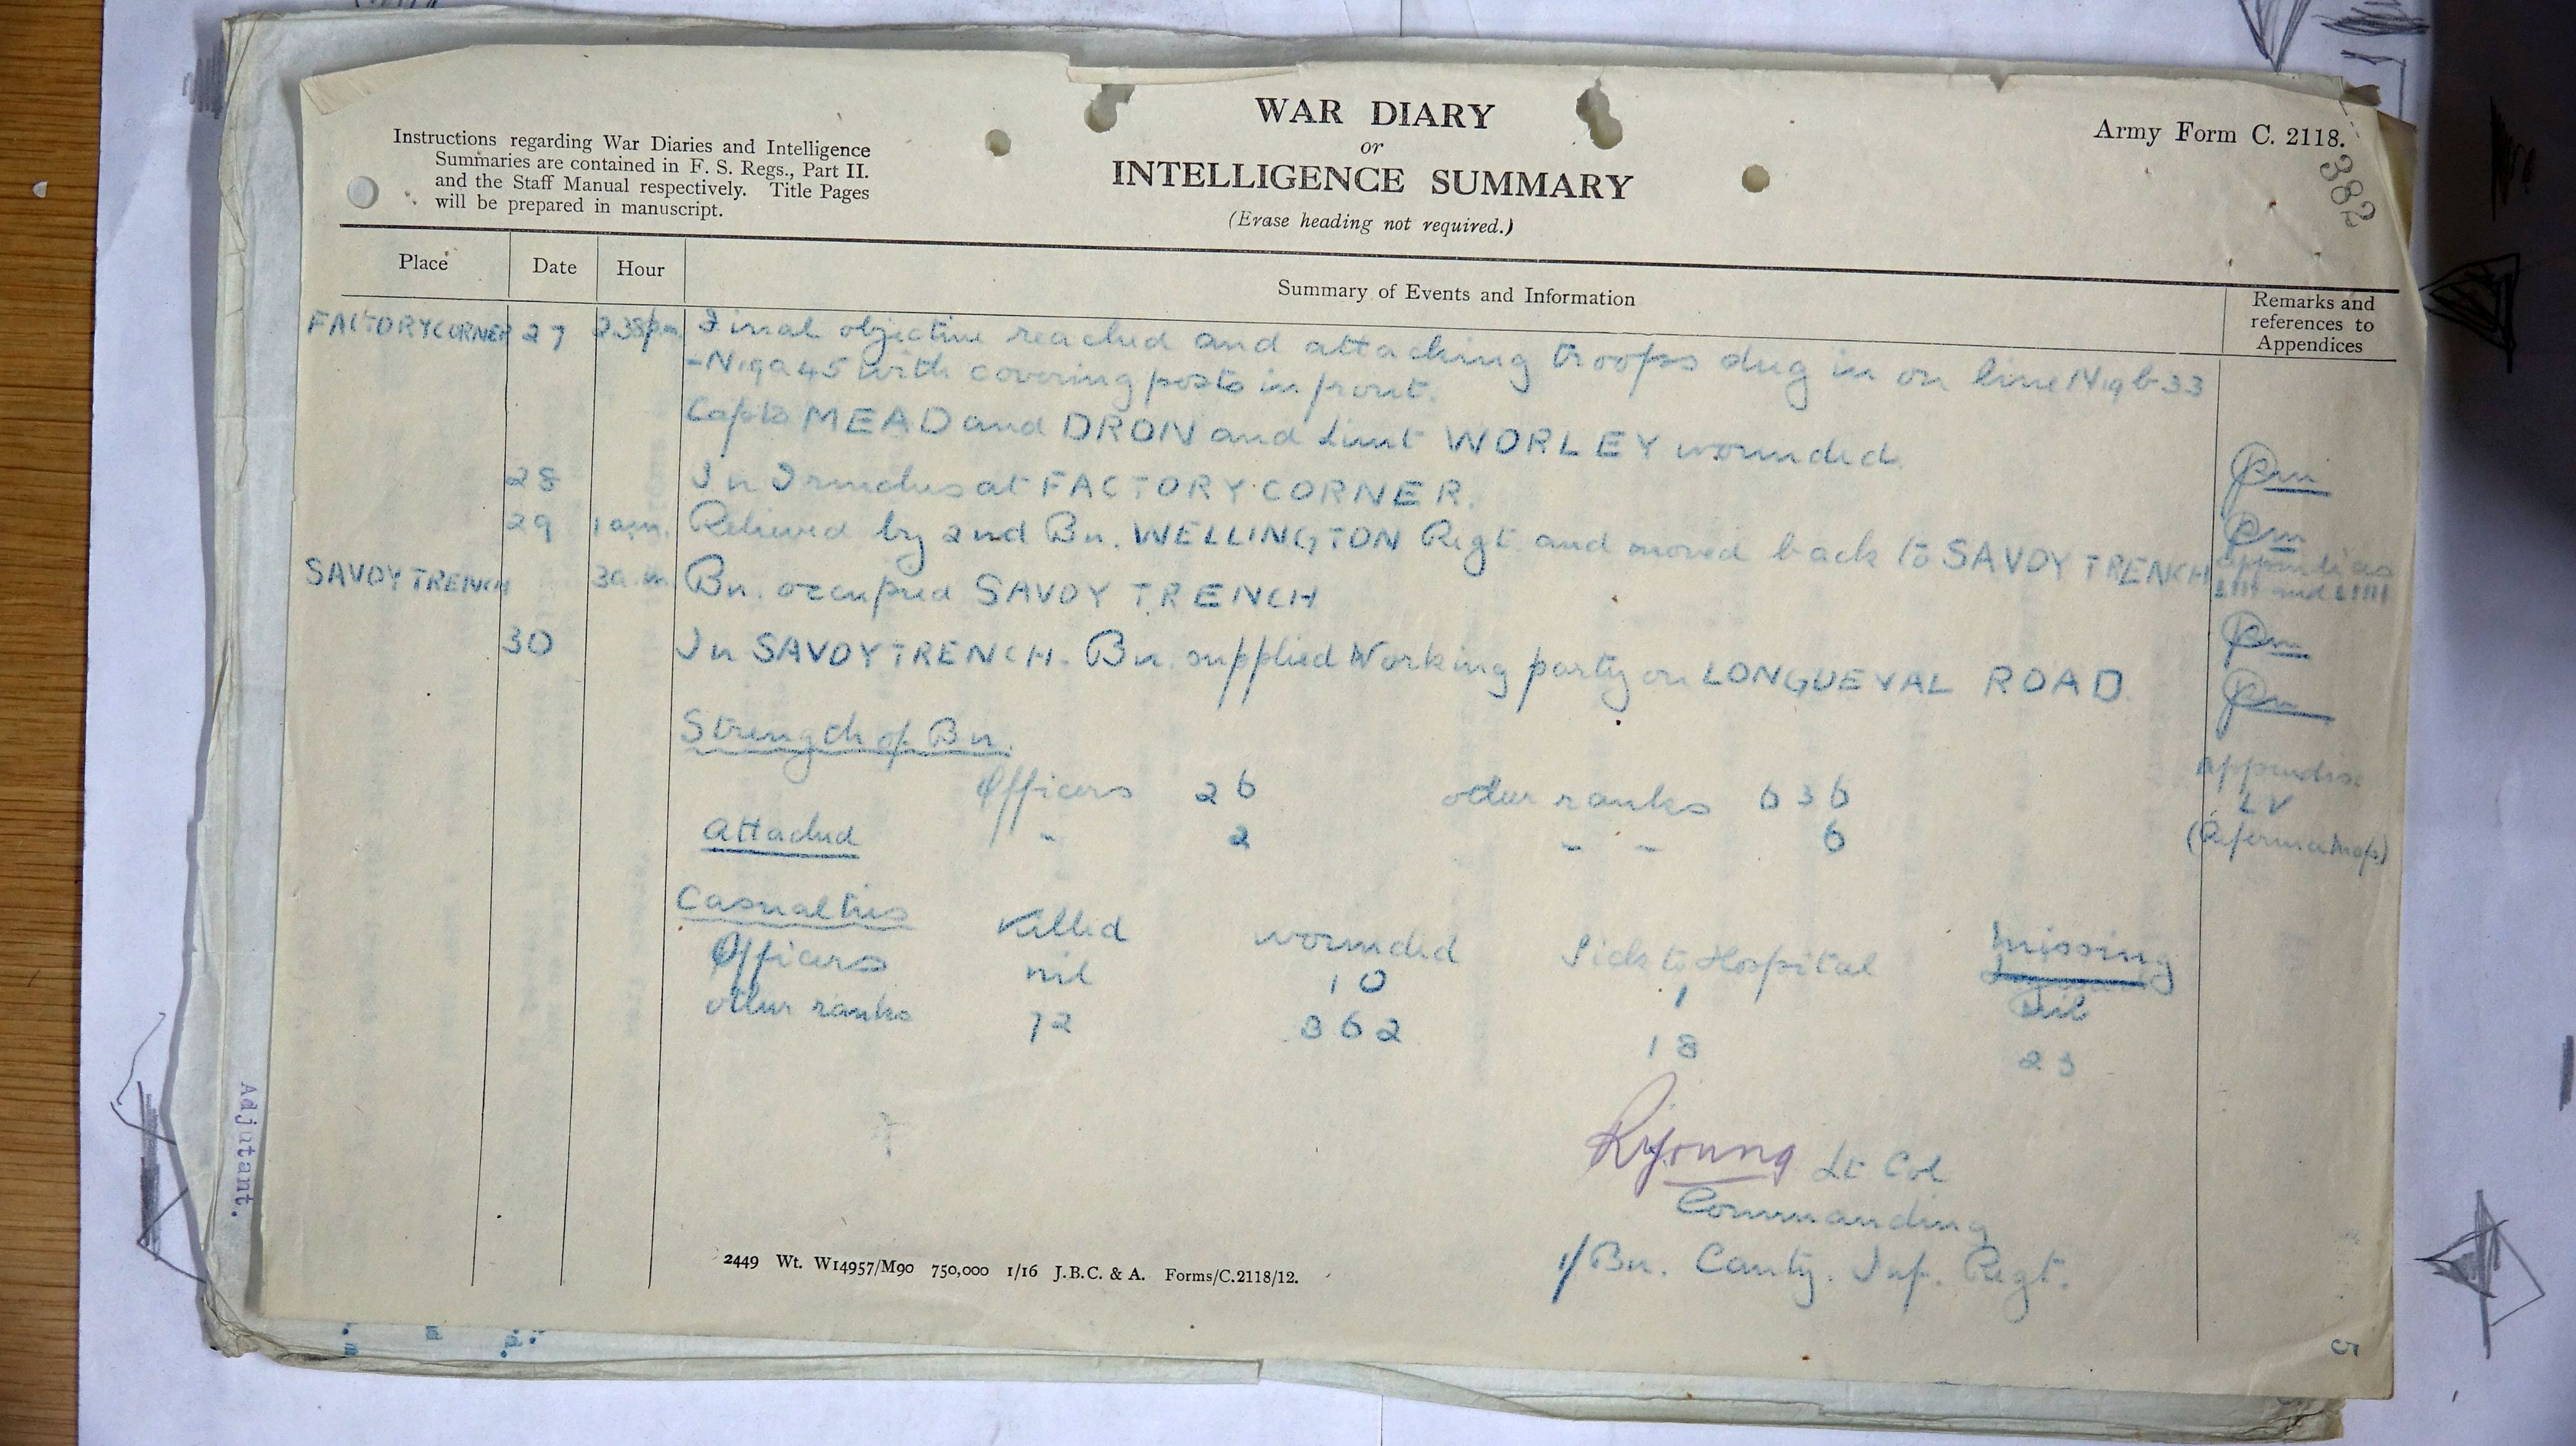 WAR DIARY
or
INTELLIGENCE SUMMARY
(Erase heading not required.)
Army Form C. 2118.
382
Instructions regarding War Diaries and Intelligence
Summaries are contained in F. S. Regs., Part II.
and the Staff Manual respectively. Title Pages
will be prepared in manuscript.
Place Date Hour Summary of Events and Information Remarks and references to Appendices
FACTORY CORNER 27 2 38 pm Final objective reached and attacking troops dug in on line N19 b 33
- N19 a 45 with covering posts in front.
Capts MEAD and DRON and Lieut WORLEY wounded.
28 In Trenches at FACTORY CORNER.
29 1 am. Relieved by 2nd Bn. WELLINGTON Regt. and moved back to SAVOY TRENCH
SAVOY TRENCH 3 a.m. Bn. occupied SAVOY TRENCH
30 In SAVOY TRENCH. Bn. supplied Working party on LONGUEVAL ROAD.
Strength of Bn.
Officers 26 other ranks 636
Appendix
LV
Attached " 2 " " 6
(Reference Map)
Casualties Killed wounded Sick to Hospital missing
Officers nil 10 1 nil
other ranks 72 362 18 23
RYoung Lt Col
Commanding
1/ Bn. Canty. Inf. Regt.
2449 Wt. W14957/M90 750,000 1/16 J.B.C. & A. Forms/C.2118/12.
Adjutant.
5